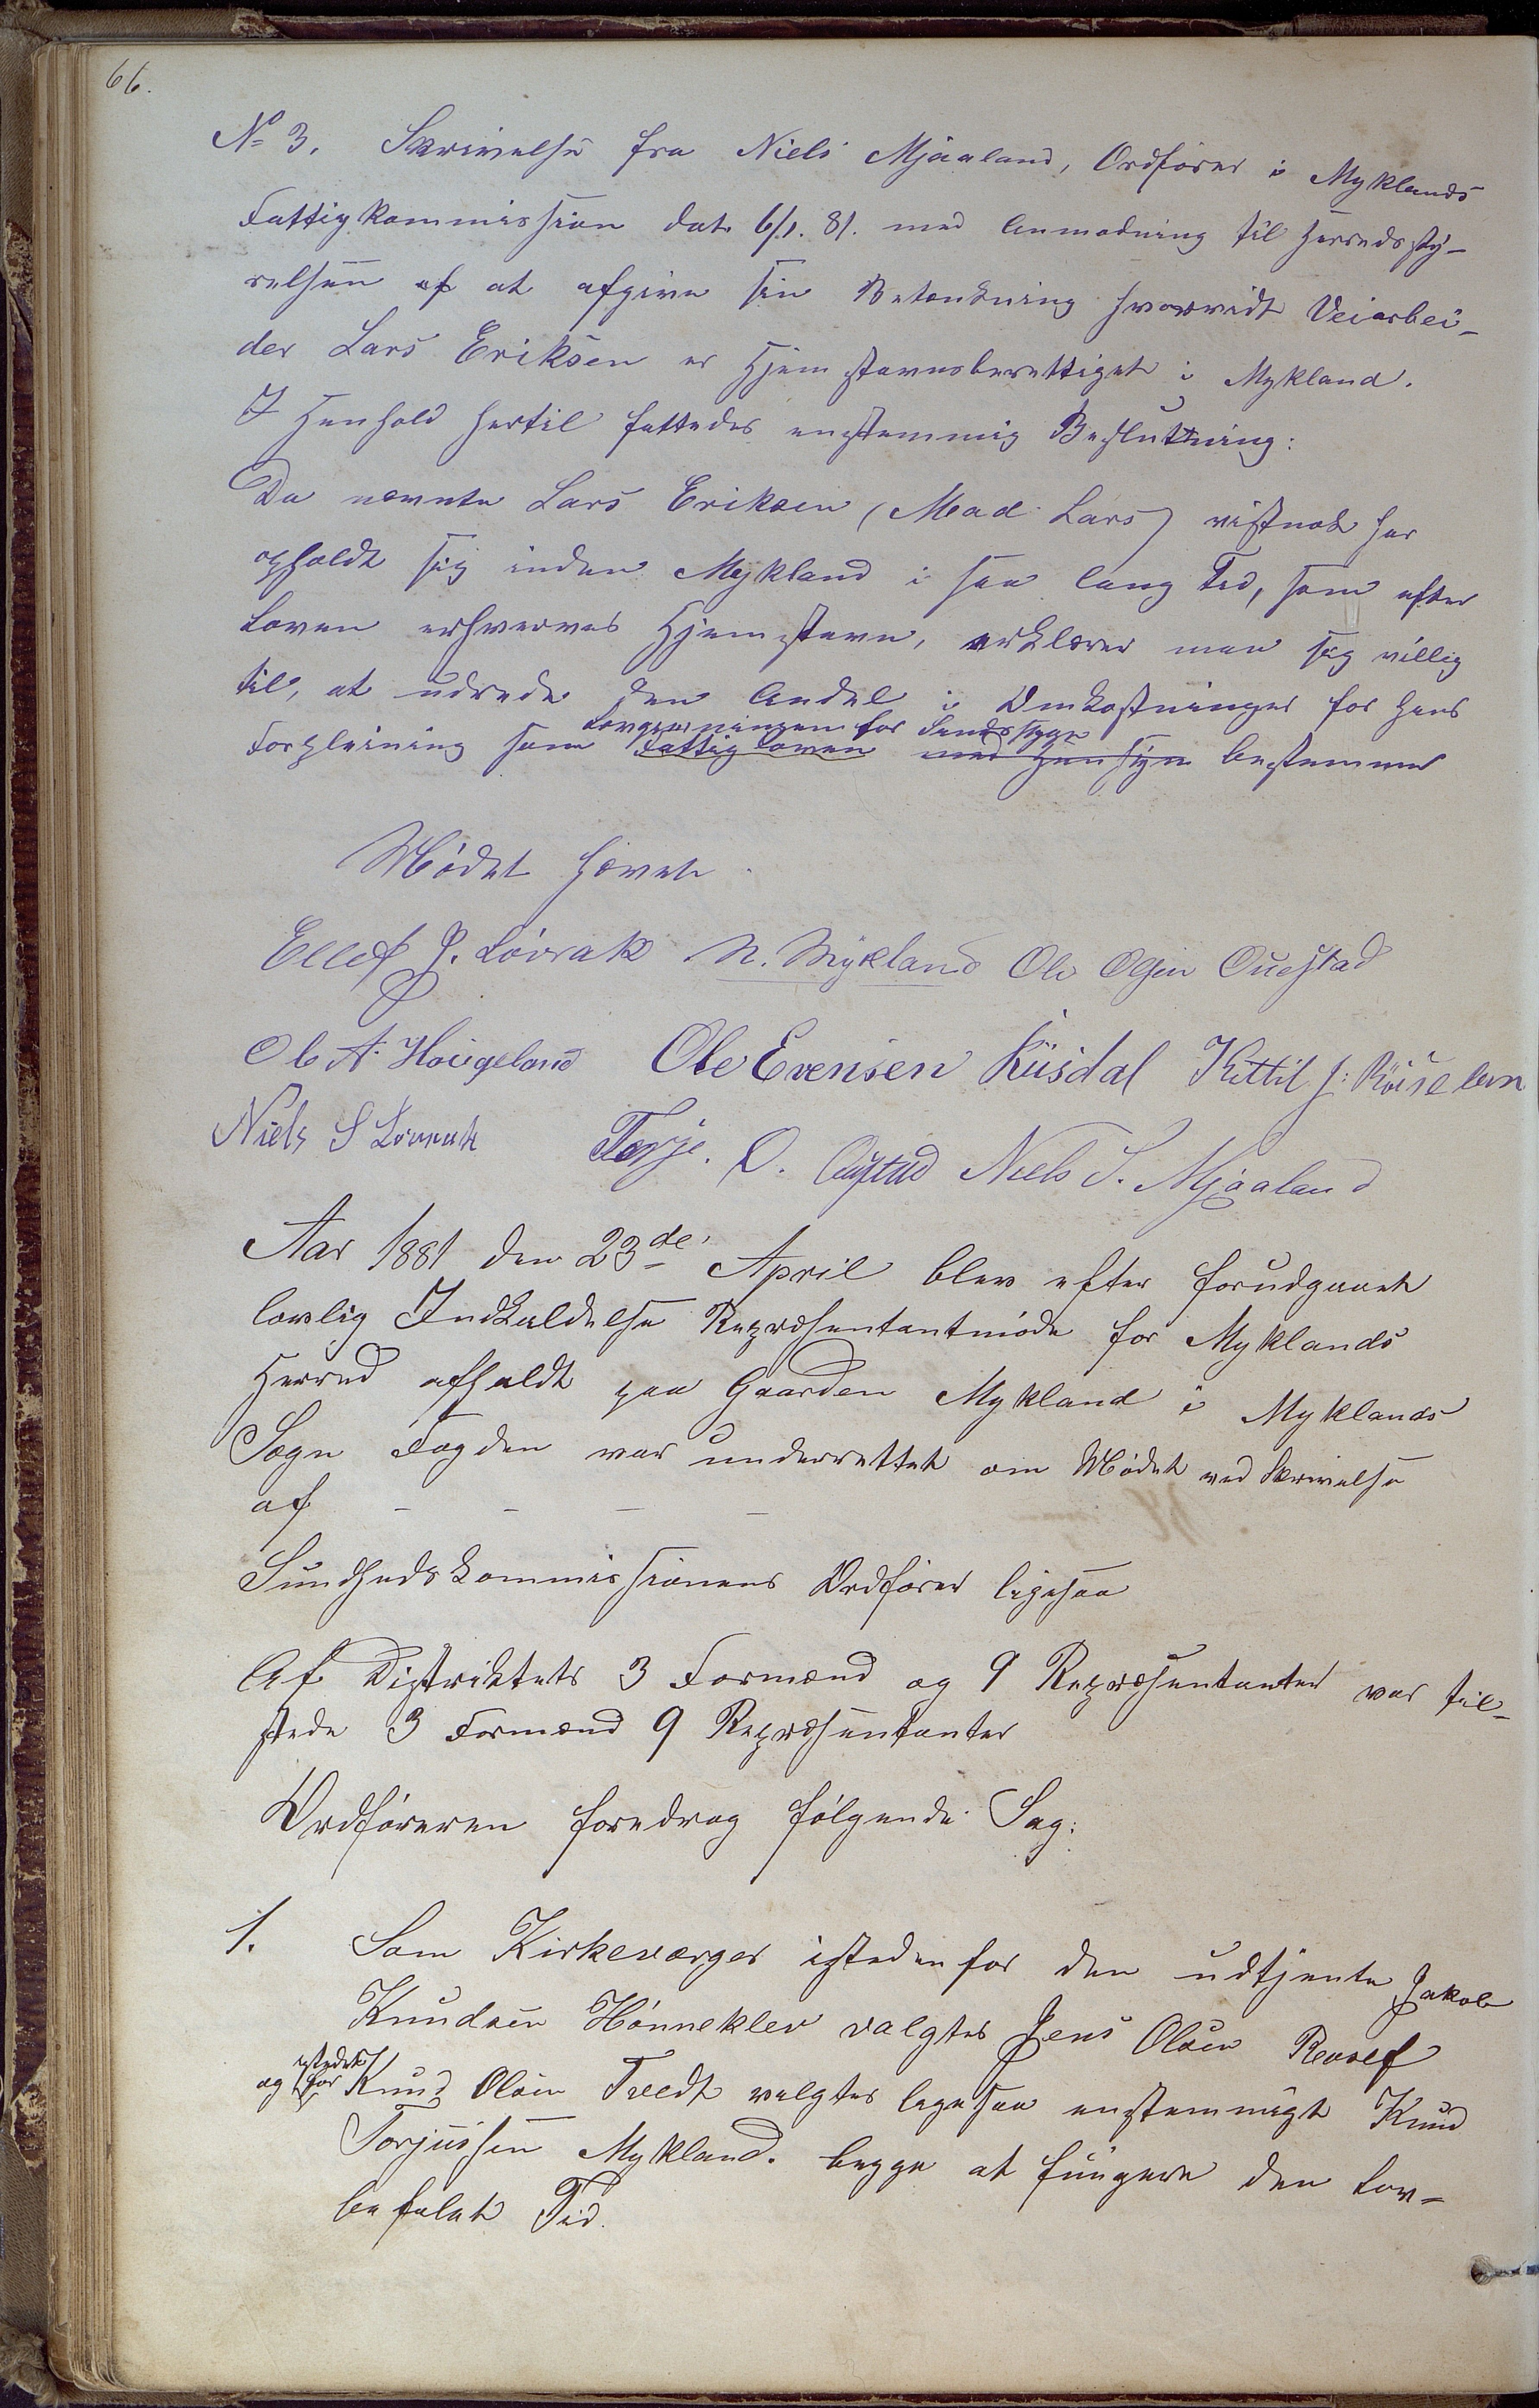 66.
No 3. Skrivelse fra Niels Mjaaland, Ordfører i Myklands
Fattigkommission dat. 6/1. 81. med Anmodning til Herredssty-
relsen af at afgive sin Betænkning hvorvidt Veiarbei-
der Lars Eriksen er Hjemstavnsberettiget i Mykland.
I Henhold hertil fattedes enstemmig Beslutning:
Da nævnte Lars Eriksen (Mad Lars) vistnok har
opholdt sig inden Mykland i saa lang Tid, som efter
Loven erhverves Hjemstavn, erklærer man sig villig
til, at udrede den Andel i Omkostninger for hans
Lovgivningen for Sindssyge
Forpleining som Fattigloven med Hensyn bestemmer
Mødet hævet.
Ellef J. Løvrak N. Mykland Ole Olsen Ouestad
Ole A. Heigeland Ole Evensen Risdal Kittil J:
Niels S Løvrak Terje. O. Niels S. Mjaaland
Aar 1881 den 23de April blev efter forudgaaet
lovlig Indkaldelse Repræsentantmøde for Myklands
Herred afholdt paa Gaarden Mykland i Myklands
Sogn Fogden var underrettet om Mødet ved Skrivelse
af - - - -
Sundhedskommissionens Ordfører ligesaa
Af Distriktets 3 Formænd og 9 Repræsentanter var til-
stede 3 Formænd 9 Repræsentanter
Ordføreren foredrog følgende Sag:
1. Som Kirkeværger istedenfor den udtjente Jakob
Knudsen Hønneklev valgtes Jens Olsen Revself
istedet
og for Knud Olsen Tveedt valgtes ligesaa enstemmigt Knud
Torjussen Mykland. begge at fungere den lov-
befalet Tid.